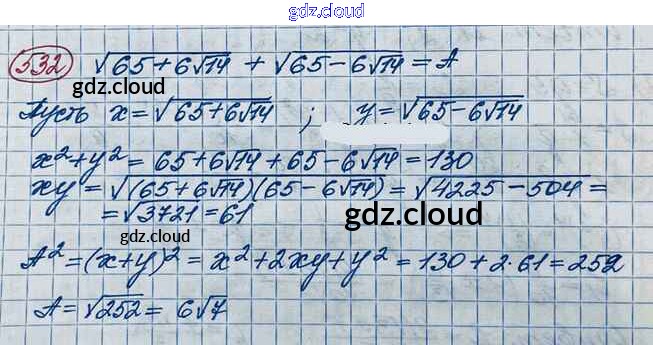 gdz.cloud
532 √65+6√14 + √65-6√14 = A
gdz.cloud
Пусть x=√65+6√14 ; y=√65-6√14
x²+y²= 65+6√14+65-6√14=130
xy=√(65+6√14)(65-6√14)=√4225-504=
=√3721=61
gdz.cloud
gdz.cloud
A²=(x+y)²= x²+2xy+y²=130+2·61=252
A=√252= 6√7